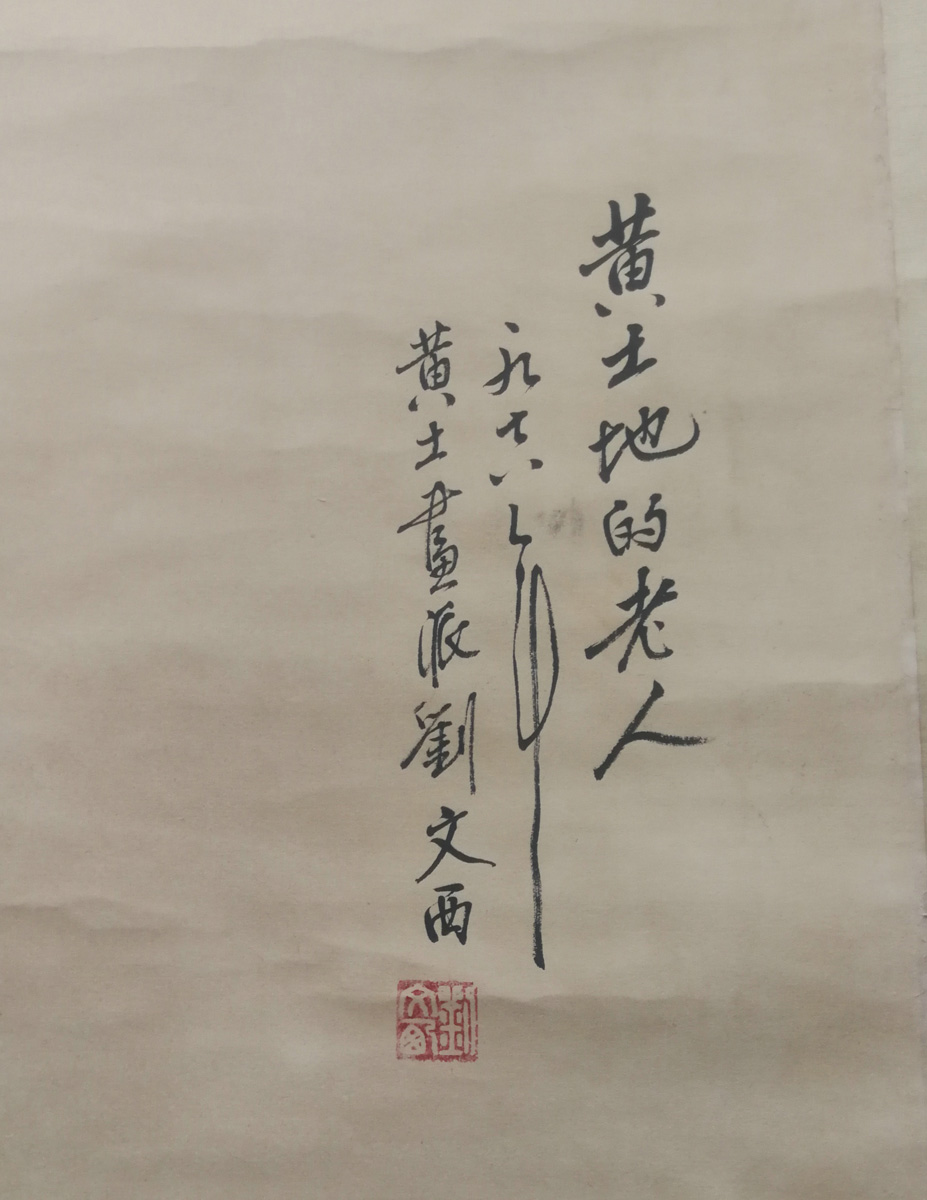 黄土地的老人
一九七八年
黄土畫派劉文西
劉文西